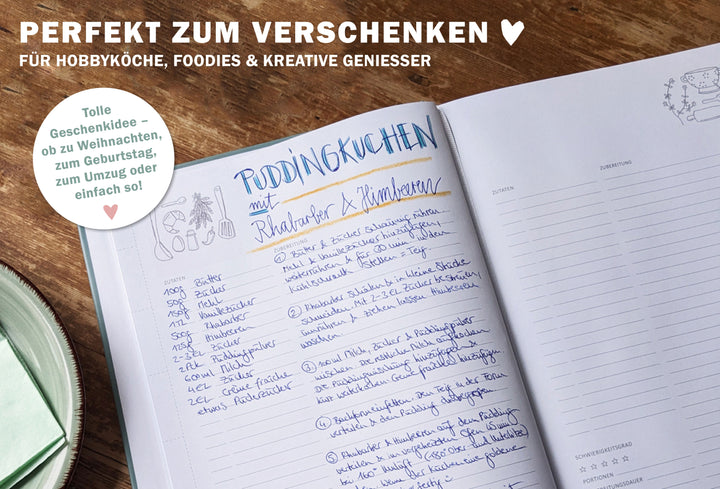 PERFEKT ZUM VERSCHENKEN
FÜR HOBBYKÖCHE, FOODIES & KREATIVE GENIESSER
Tolle
Geschenkidee –
ob zu Weihnachten,
zum Geburtstag,
zum Umzug oder
einfach so!
PUDDINGKUCHEN
mit
Rhabarber & Himbeeren
ZUTATEN
100g Butter
50g Zucker
150g Mehl
1 TL Vanillezucker
500g Rhabarber
125g Himbeeren
2-3 EL Zucker
2 Pck Puddingpulver
600ml Milch
4 EL Zucker
2 EL Crème fraîche
etwas Puderzucker
ZUBEREITUNG
① Butter & Zucker schaumig rühren.
Mehl & Vanillezucker hinzufügen,
weiterrühren & für 20 min in den
Kühlschrank stellen = Teig
② Rhabarber schälen & in kleine Stücke
schneiden. Mit 2-3 EL Zucker bestreuen,
umrühren & ziehen lassen Himbeeren
waschen.
③ 100ml Milch, Zucker & Puddingpulver
mischen. Die restliche Milch aufkochen
Die Puddingmischung hinzufügen &
kurz weiterkochen. Creme fraiche hinzufügen.
④ Backform einfetten. Den Teig in der Form
verteilen & den Pudding darübergeben
⑤ Rhabarber & Himbeeren auf dem Pudding
verteilen & im vorgeheizten Ofen 45 min
bei 160° Umluft (180° Ober- und Unterhitze)
wenn der Kuchen eine goldene
fertig
ZUTATEN
ZUBEREITUNG
SCHWIERIGKEITSGRAD
PORTIONEN